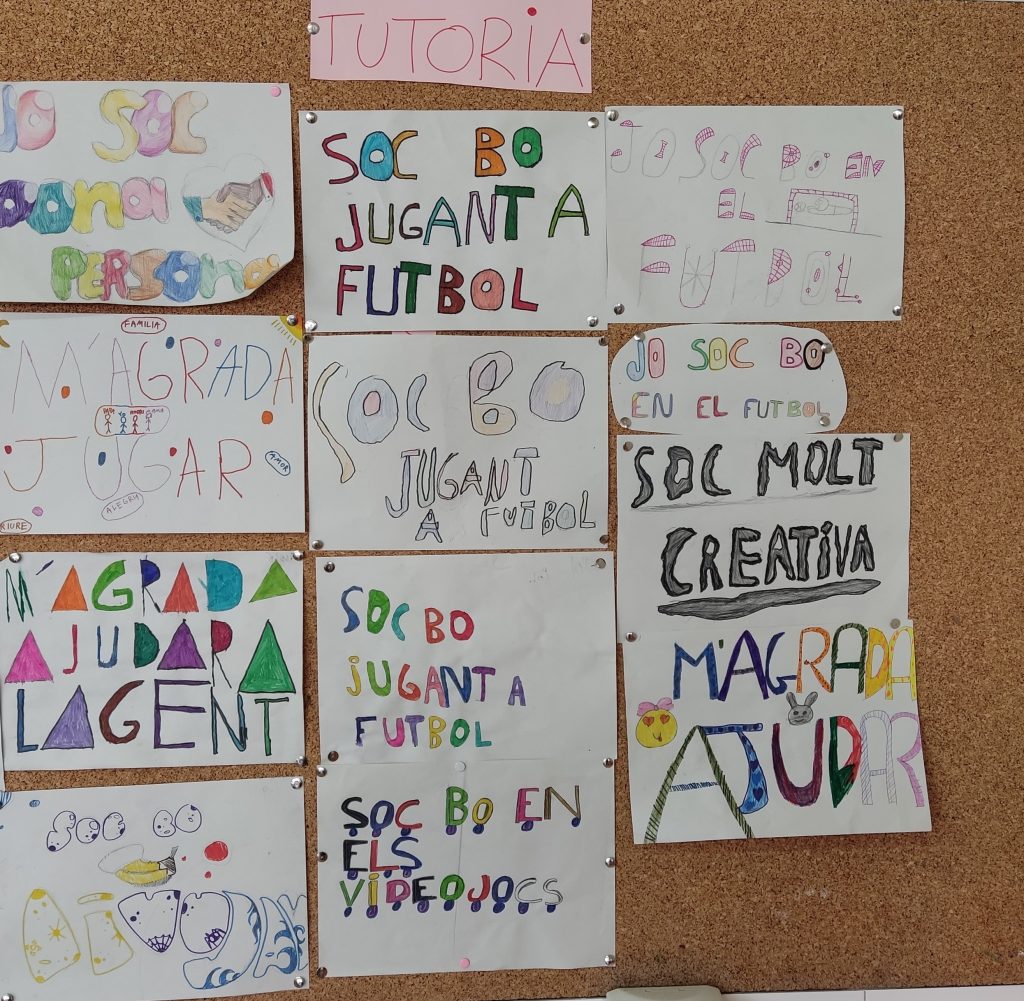 TUTORIA
JO SOC
BONA
PERSONA
SOC BO
JUGANT A
FUTBOL
JO SOC BO EN
EL
FUTBOL
FAMILIA
M'AGRADA
JUGAR
AMOR
ALEGRIA
RIURE
SOC BO
JUGANT
A FUTBOL
JO SOC BO
EN EL FUTBOL
SOC MOLT
CREATIVA
M'AGRADA
AJUDAR A
LA GENT
SOC BO
JUGANT A
FUTBOL
M'AGRADA
AJUDAR
SOC BO
SOC BO EN
ELS
VIDEOJOCS